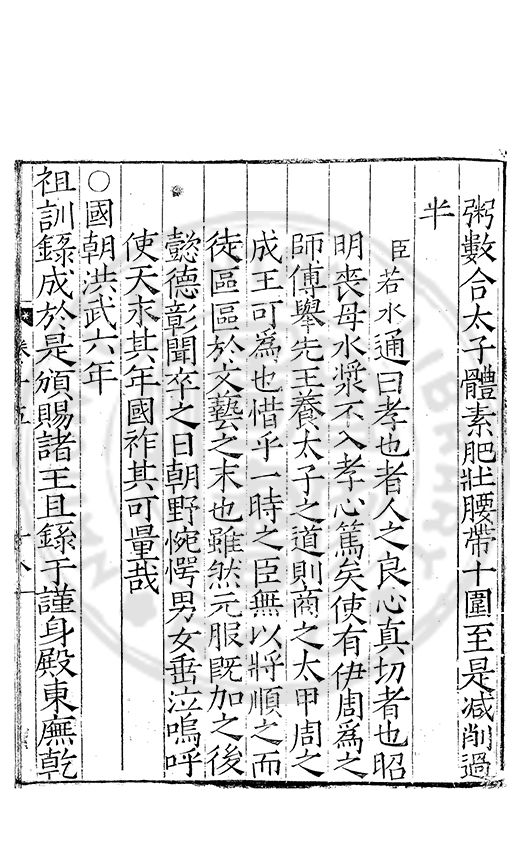 粥數合太子體素肥壯腰帶十圍至是減削過
半
臣若水通曰孝也者人之良心真切者也昭
明喪母水漿不入孝心篤矣使有伊周爲之
師傅舉先王養太子之道則商之太甲周之
成王可爲也惜乎一時之臣無以將順之而
徒區區於文藝之末也雖然元服旣加之後
懿德彰聞卒之日朝野惋愕男女垂泣嗚呼
使天永其年國祚其可量哉
○國朝洪武六年
祖訓錄成於是頒賜諸王且錄于謹身殿東廡乾